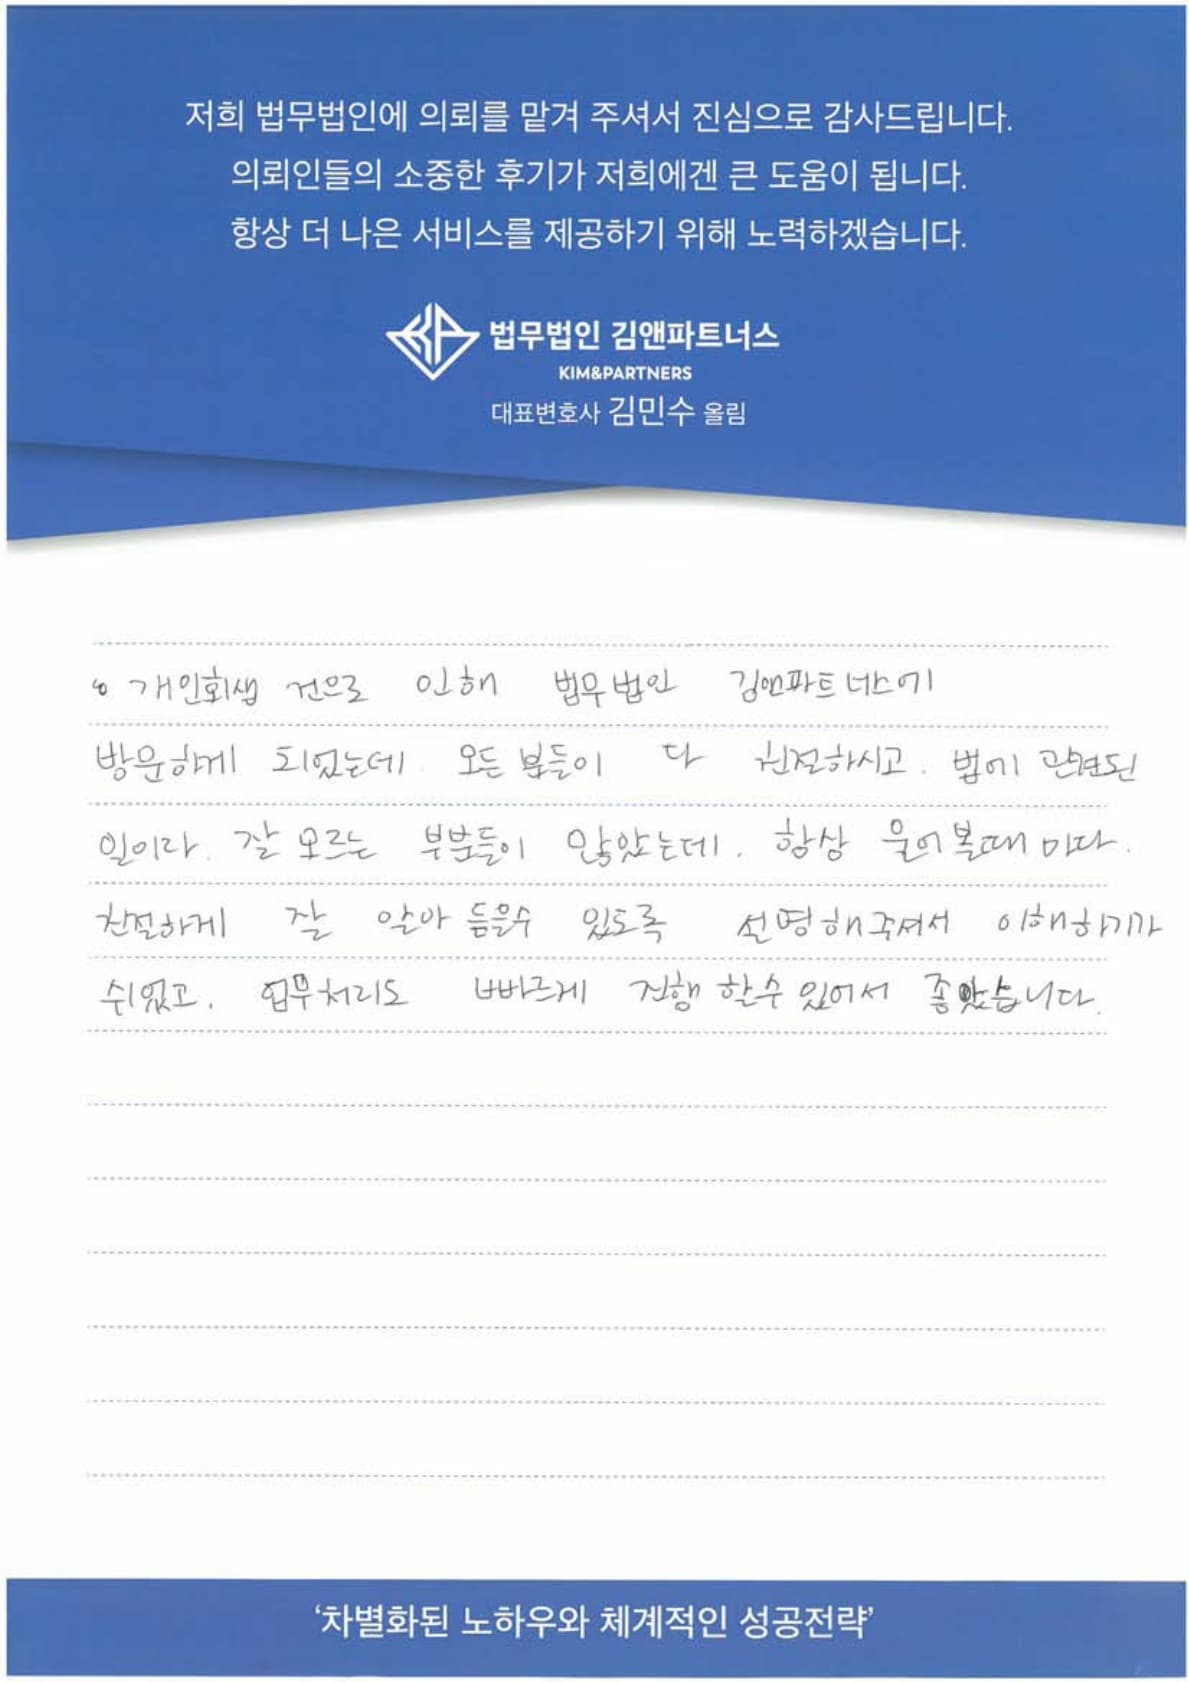 저희 법무법인에 의뢰를 맡겨 주셔서 진심으로 감사드립니다.
의뢰인들의 소중한 후기가 저희에겐 큰 도움이 됩니다.
항상 더 나은 서비스를 제공하기 위해 노력하겠습니다.
법무법인 김앤파트너스
KIM&PARTNERS
대표변호사 김민수 올림
개인회생 건으로 인해 법무법인 김앤파트너스에
방문하게 되었는데. 모든 분들이 다 친절하시고. 법에 관련된
일이라. 잘 모르는 부분들이 많았는데. 항상 물어볼때 마다.
친절하게 잘 알아 듣을수 있도록 설명해주셔서 이해하기가
쉬웠고. 업무처리도 빠르게 진행 할수 있어서 좋았습니다.
'차별화된 노하우와 체계적인 성공전략'